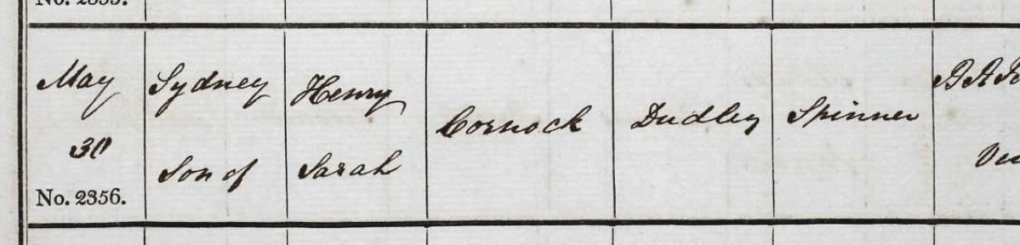 No. 2355.
May Sydney Henry
Cornock Dudley Spinner
30 Son of Sarah
No. 2356.